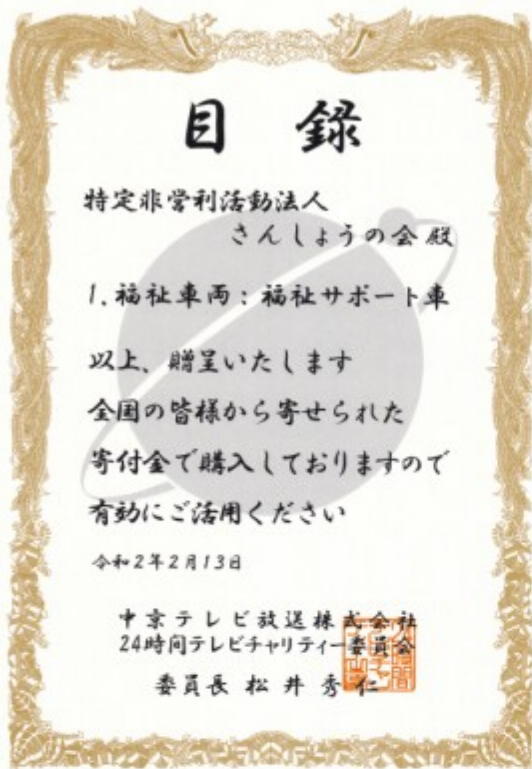 目 録
特定非営利活動法人
さんしょうの会 殿
1. 福祉車両 : 福祉サポート車
以上、贈呈いたします
全国の皆様から寄せられた
寄付金で購入しておりますので
有効にご活用ください
令和2年2月13日
中京テレビ放送株式会社
24時間テレビチャリティー委員会
委員長 松井秀仁